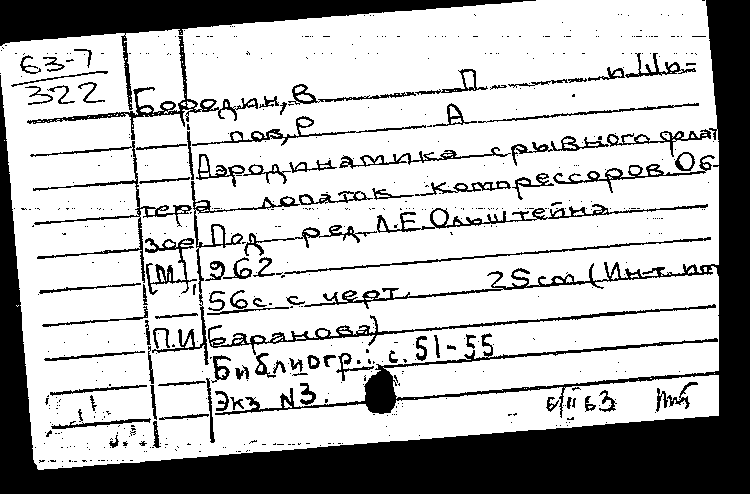 63-7
322
Бородин, В П и Шп=
пов, Р А
Аэродинамика срывного фла
тера лопаток компрессоров. Об
зор. Под ред. Л.Е. Ольштейна
[М], 962.
56с. с черт. 25 cm (Ин-т.
П.И Баранова)
Библиогр.: с. 51-55
Экз N3.
6/II 63